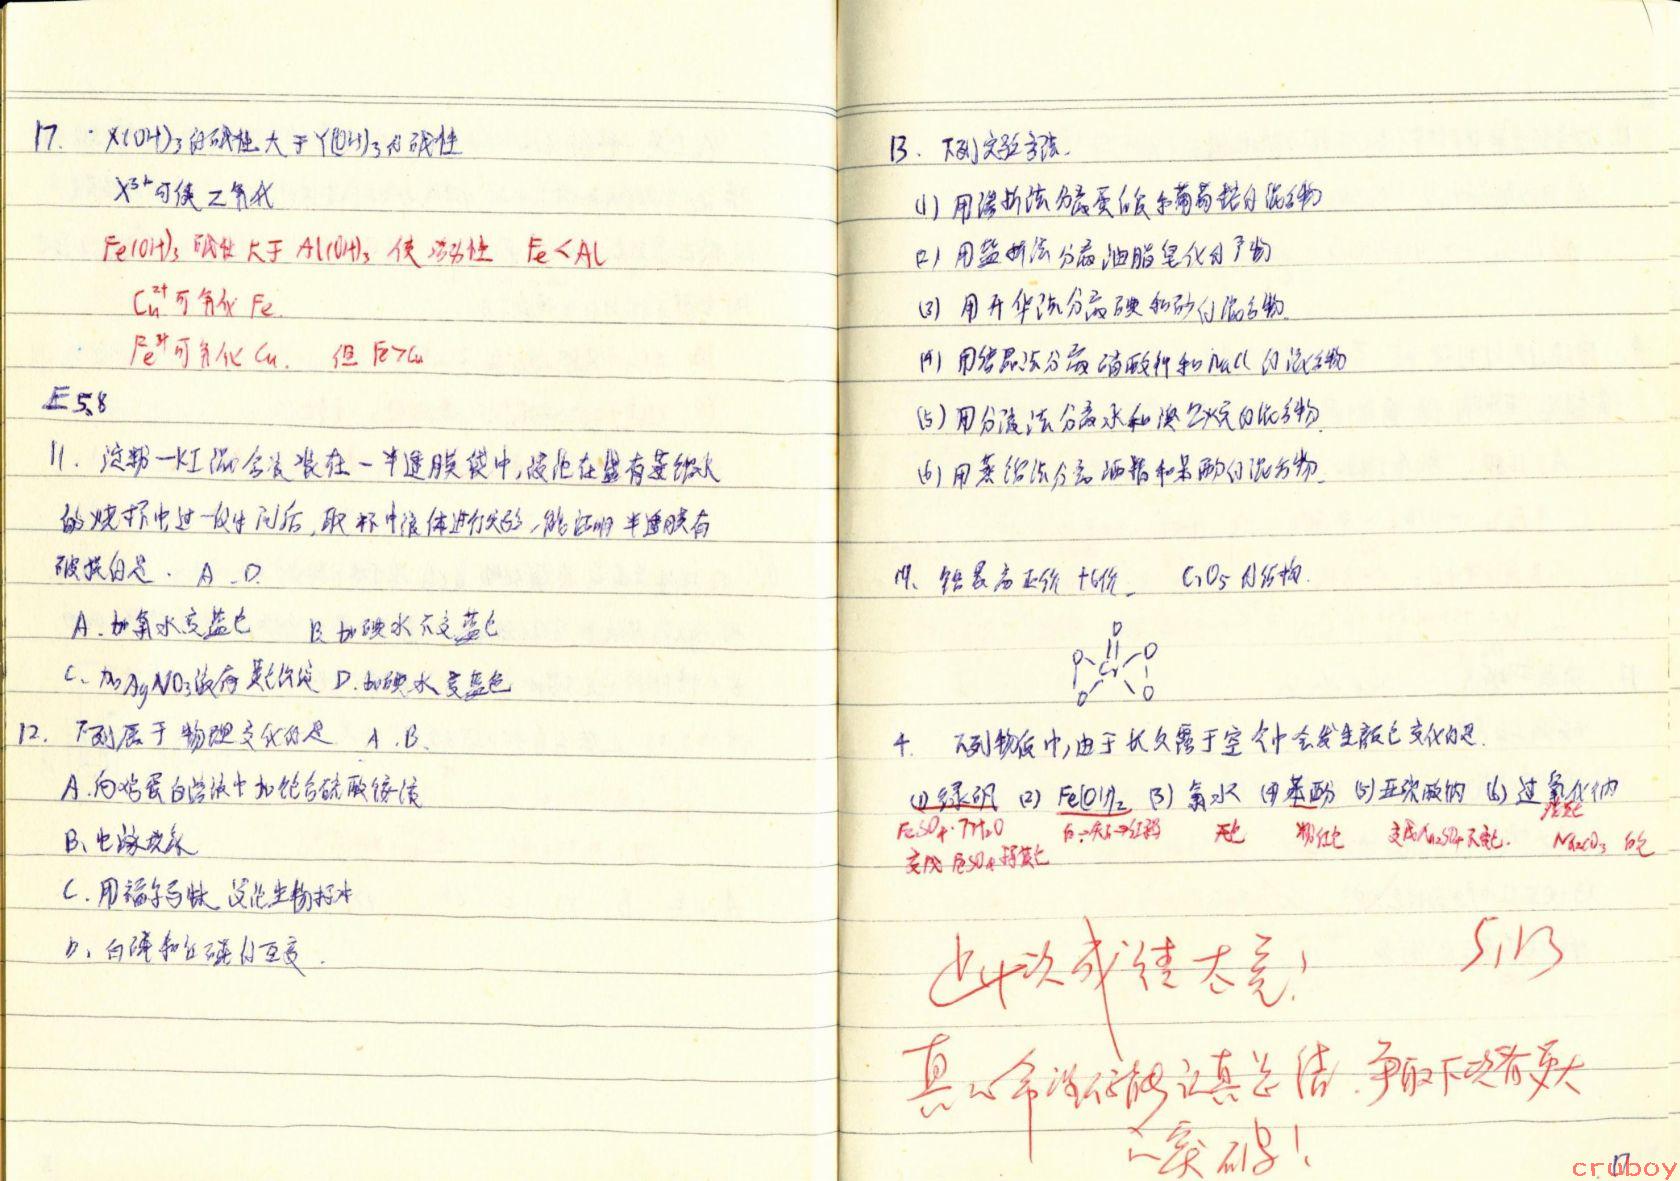 17. X(OH)3的碱性大于Y(OH)3的碱性
X3+可使Z氧化
Fe(OH)3 碱性大于 Al(OH)3 但活动性 Fe<Al
Cu2+可氧化Fe.
Fe3+可氧化Cu. 但 Fe>Cu
E 5.8
11. 淀粉-KI混合液装在一半透膜袋中,浸泡在盛有蒸馏水
的烧杯中过一段时间后,取杯中液体进行实验,能证明半透膜有
破损的是. A D
A.加氯水变蓝色 B.加碘水不变蓝色
C.加AgNO3液有黄色沉淀 D.加碘水变蓝色
12. 下列属于物理变化的是 A.B.
A.向鸡蛋白溶液中加饱合硫酸铵液
B.电泳现象
C.用福尔马林浸泡生物标本
D.白磷和红磷的互变.
13. 下列实验方法.
(1) 用渗析法分离蛋白质和葡萄糖的混合物
(2) 用盐析法分离油脂皂化的产物
(3) 用升华法分离碘和砂的混合物.
(4) 用结晶法分离硝酸钾和NaCl的混合物
(5) 用分液法分离水和溴乙烷的混合物.
(6) 用蒸馏法分离酒精和苯酚的混合物.
14. 铬最高正价+6价. CrO5的结构.
O
O Cr O
O O
4. 下列物质中,由于长久露于空气中会发生颜色变化的是.
(1)绿矾 (2) Fe(OH)2 (3) 氯水 (4)苯酚 (5)亚硫酸钠 (6) 过氧化钠
淡黄
FeSO4·7H2O 白→灰绿→红褐 无色 粉红色 变成Na2SO4不变色. Na2CO3 白色
变成
此次成绩太亮! 5,13
真心希望你能认真总结,争取下次有更大
的突破!
17
cruboy